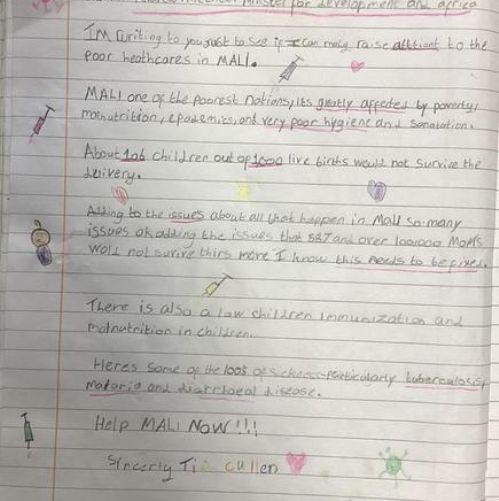 Minister for development and africa
I'M writing to you just to see if I can make raise attiant to the
poor heathcares in MALI.
MALI one of the poorest nations, its greatly affected by poverty,
malnutrition, epademics, and very poor hygiene and sanatation.
About 106 children out of 1000 live births would not survive the
delivery.
Adding to the issues about all that happen in Mali so many
issues ok adding the issues that 587 and over 100,000 MoMs
wold not surive thirs more I know this needs to be fixed.
There is also a low children immunization and
malnutrition in children.
Heres some of the 100s of sickness-particularly tuberculosis,
malaria and diarrhoeal disease.
Help MALI NOW!!!
Sincerly Ti cullen